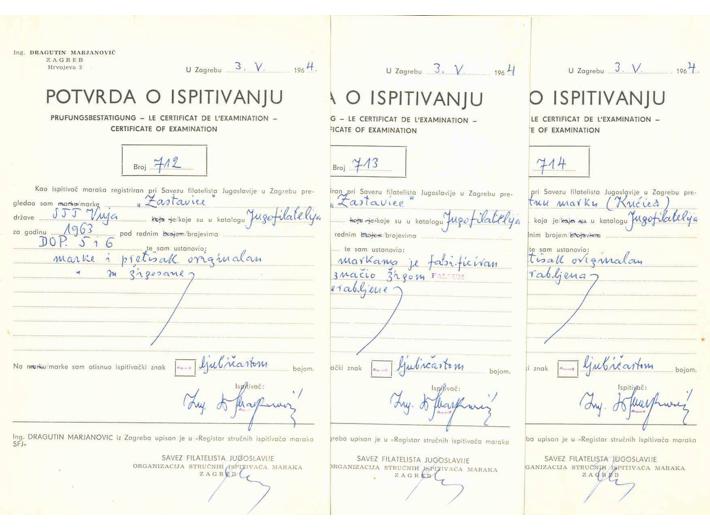 Ing. DRAGUTIN MARJANOVIĆ
ZAGREB
Hrvojeva 3
U Zagrebu 3. V. 1964.
POTVRDA O ISPITIVANJU
PRUFUNGSBESTATIGUNG – LE CERTIFICAT DE L'EXAMINATION –
CERTIFICATE OF EXAMINATION
Broj 712
Kao ispitivač maraka registriran pri Savezu filatelista Jugoslavije u Zagrebu pre-
gledao sam marku marke „Zastavice"
države STT Vuja koja je koje su u katalogu Jugofilatelija
za godinu 1963 pod rednim brojem brojevima
DOP. 5 i 6 te sam ustanovio:
marke i pretisak originalan
" " žigosane
Na marku marke sam otisnuo ispitivački znak ljubičastom bojom.
Ispitivač:
Ing. DRAGUTIN MARJANOVIĆ iz Zagreba upisan je u »Registar stručnih ispitivača maraka
SFJ«
SAVEZ FILATELISTA JUGOSLAVIJE
ORGANIZACIJA STRUČNIH ISPITIVAČA MARAKA
ZAGREB
U Zagrebu 3. V. 1964
A O ISPITIVANJU
G – LE CERTIFICAT DE L'EXAMINATION –
FICATE OF EXAMINATION
Broj 713
iran pri Savezu filatelista Jugoslavije u Zagrebu pre-
„Zastavice"
koja je koje su u katalogu Jugofilatelija
rednim brojem brojevima
te sam ustanovio:
markama je falsificiran
značio žigom FALSUM
rabljene
ački znak ljubičastom bojom.
Ispitivač:
greba upisan je u »Registar stručnih ispitivača maraka
SAVEZ FILATELISTA JUGOSLAVIJE
RGANIZACIJA STRUČNIH ISPITIVAČA MARAKA
ZAGREB
U Zagrebu 3. V. 1964.
O ISPITIVANJU
LE CERTIFICAT DE L'EXAMINATION –
TE OF EXAMINATION
714
pri Savezu filatelista Jugoslavije u Zagrebu pre-
tnu marku (Knićeš)
koja je koje su u katalogu Jugofilatelija
nim brojem brojevima
te sam ustanovio:
tisak originalan
rabljena
i znak ljubičastom bojom.
Ispitivač:
ba upisan je u »Registar stručnih ispitivača maraka
SAVEZ FILATELISTA JUGOSLAVIJE
GANIZACIJA STRUČNIH ISPITIVAČA MARAKA
ZAGREB